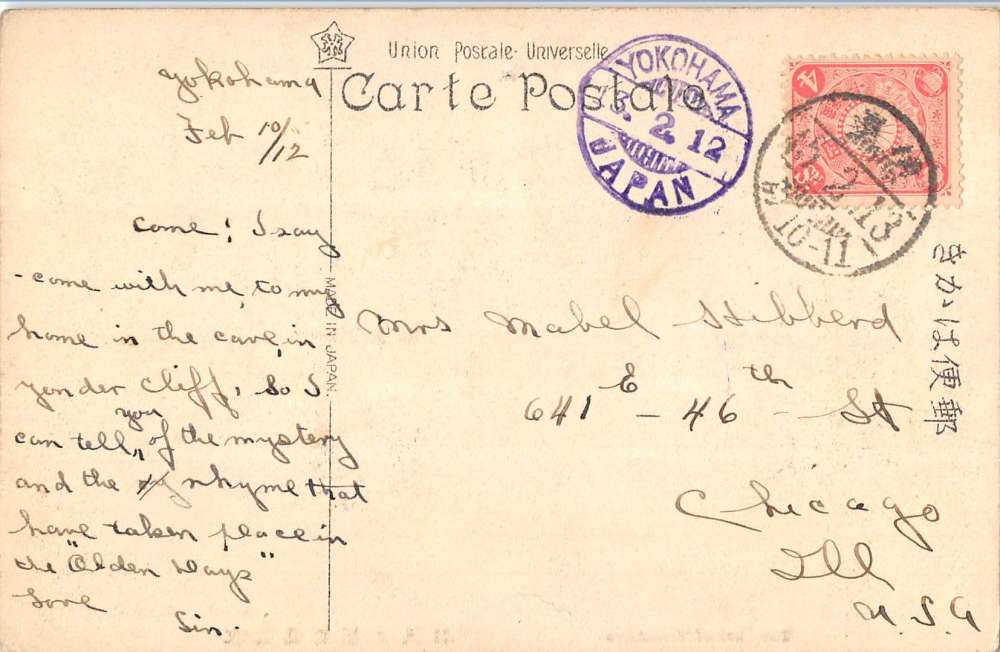 Union Postale Universelle
Carte Postale
YOKOHAMA
2. 12
JAPAN
2 13
10-11
4
きかは便郵
MADE IN JAPAN
Yokohama
Feb 10/12
Come! I say
- come with me, to my
home in the cave, in
yonder cliff, so I
can tell you of the mystery
and the rhyme that
have taken place in
the "Olden Days"
Love
Sin.
Mrs Mabel Hibberd
641 E - 46th - St
Chicago
Ill
U.S.A